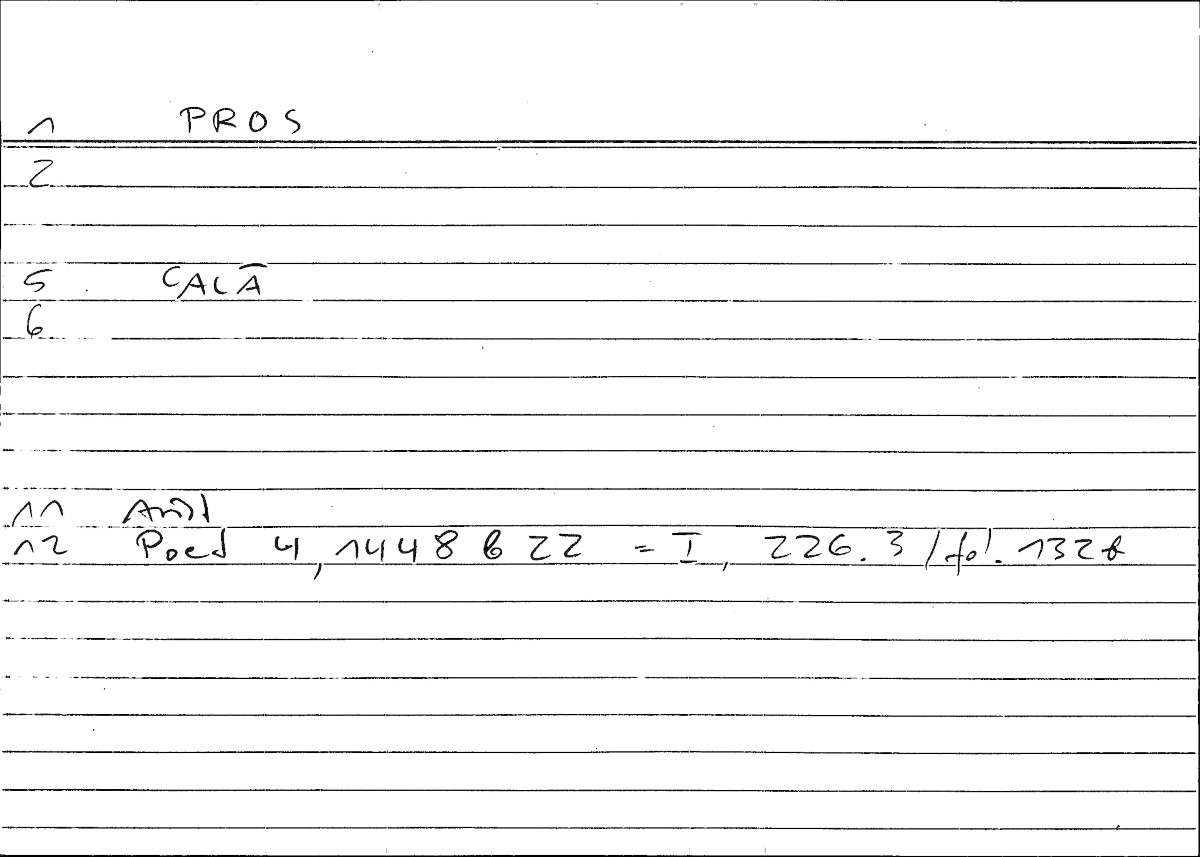 1 PROS
2
5 CALĀ
6
11 Arist
12 Poet 4, 1448 b 22 = I, 226.3 / fol. 132b